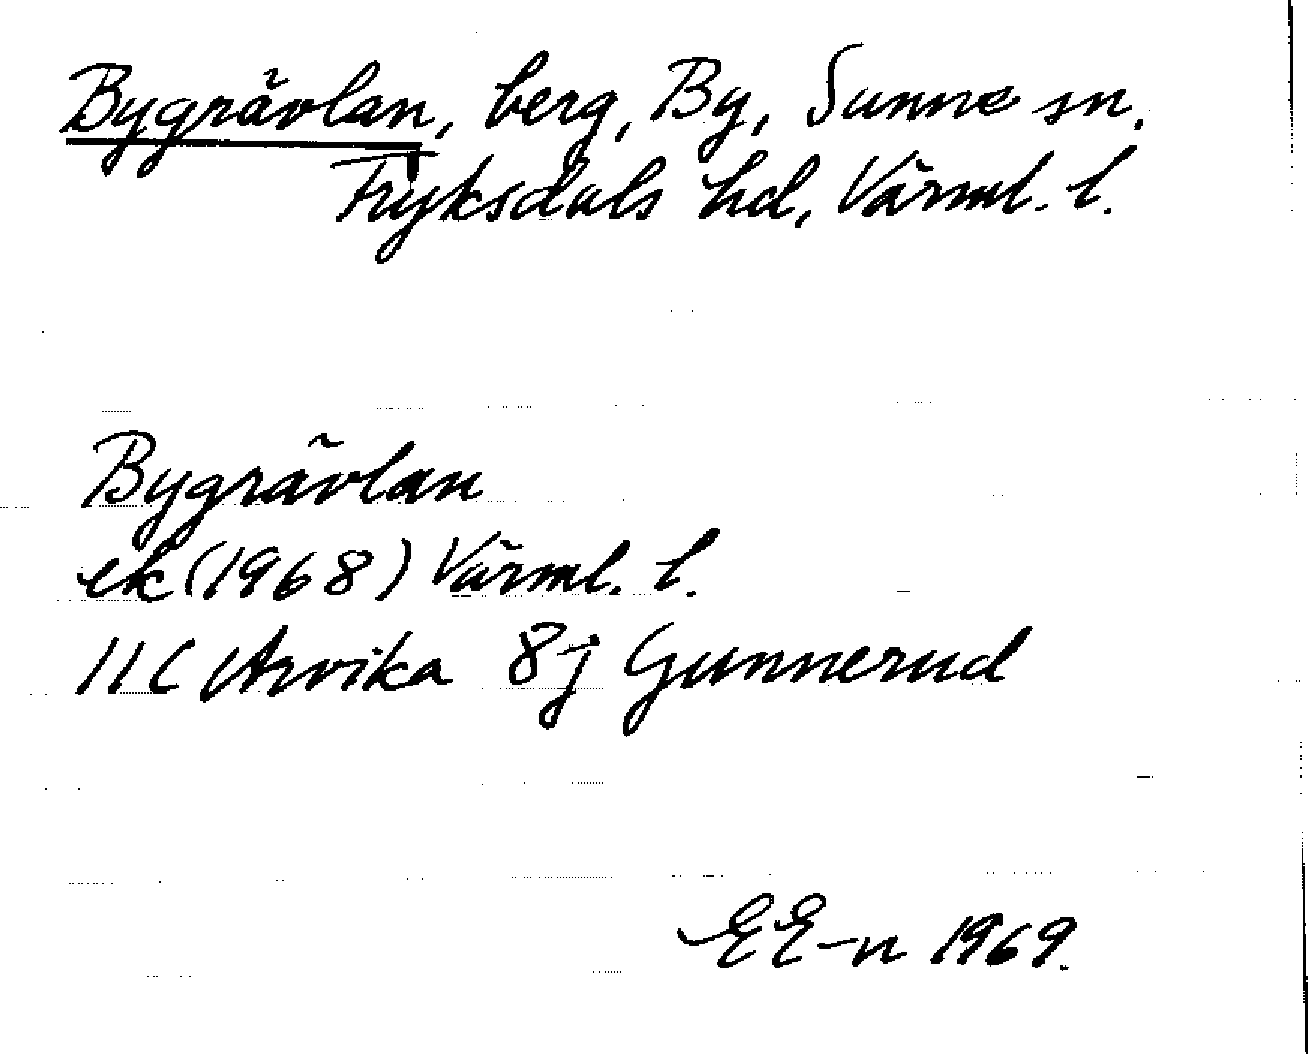 Bygrävlan, berg, By, Sunne sn.
Fryksdals hd, Värml. l.
Bygrävlan
ek (1968) Värml. l.
11C Arvika 8j Gunnerud
EE-n 1969.